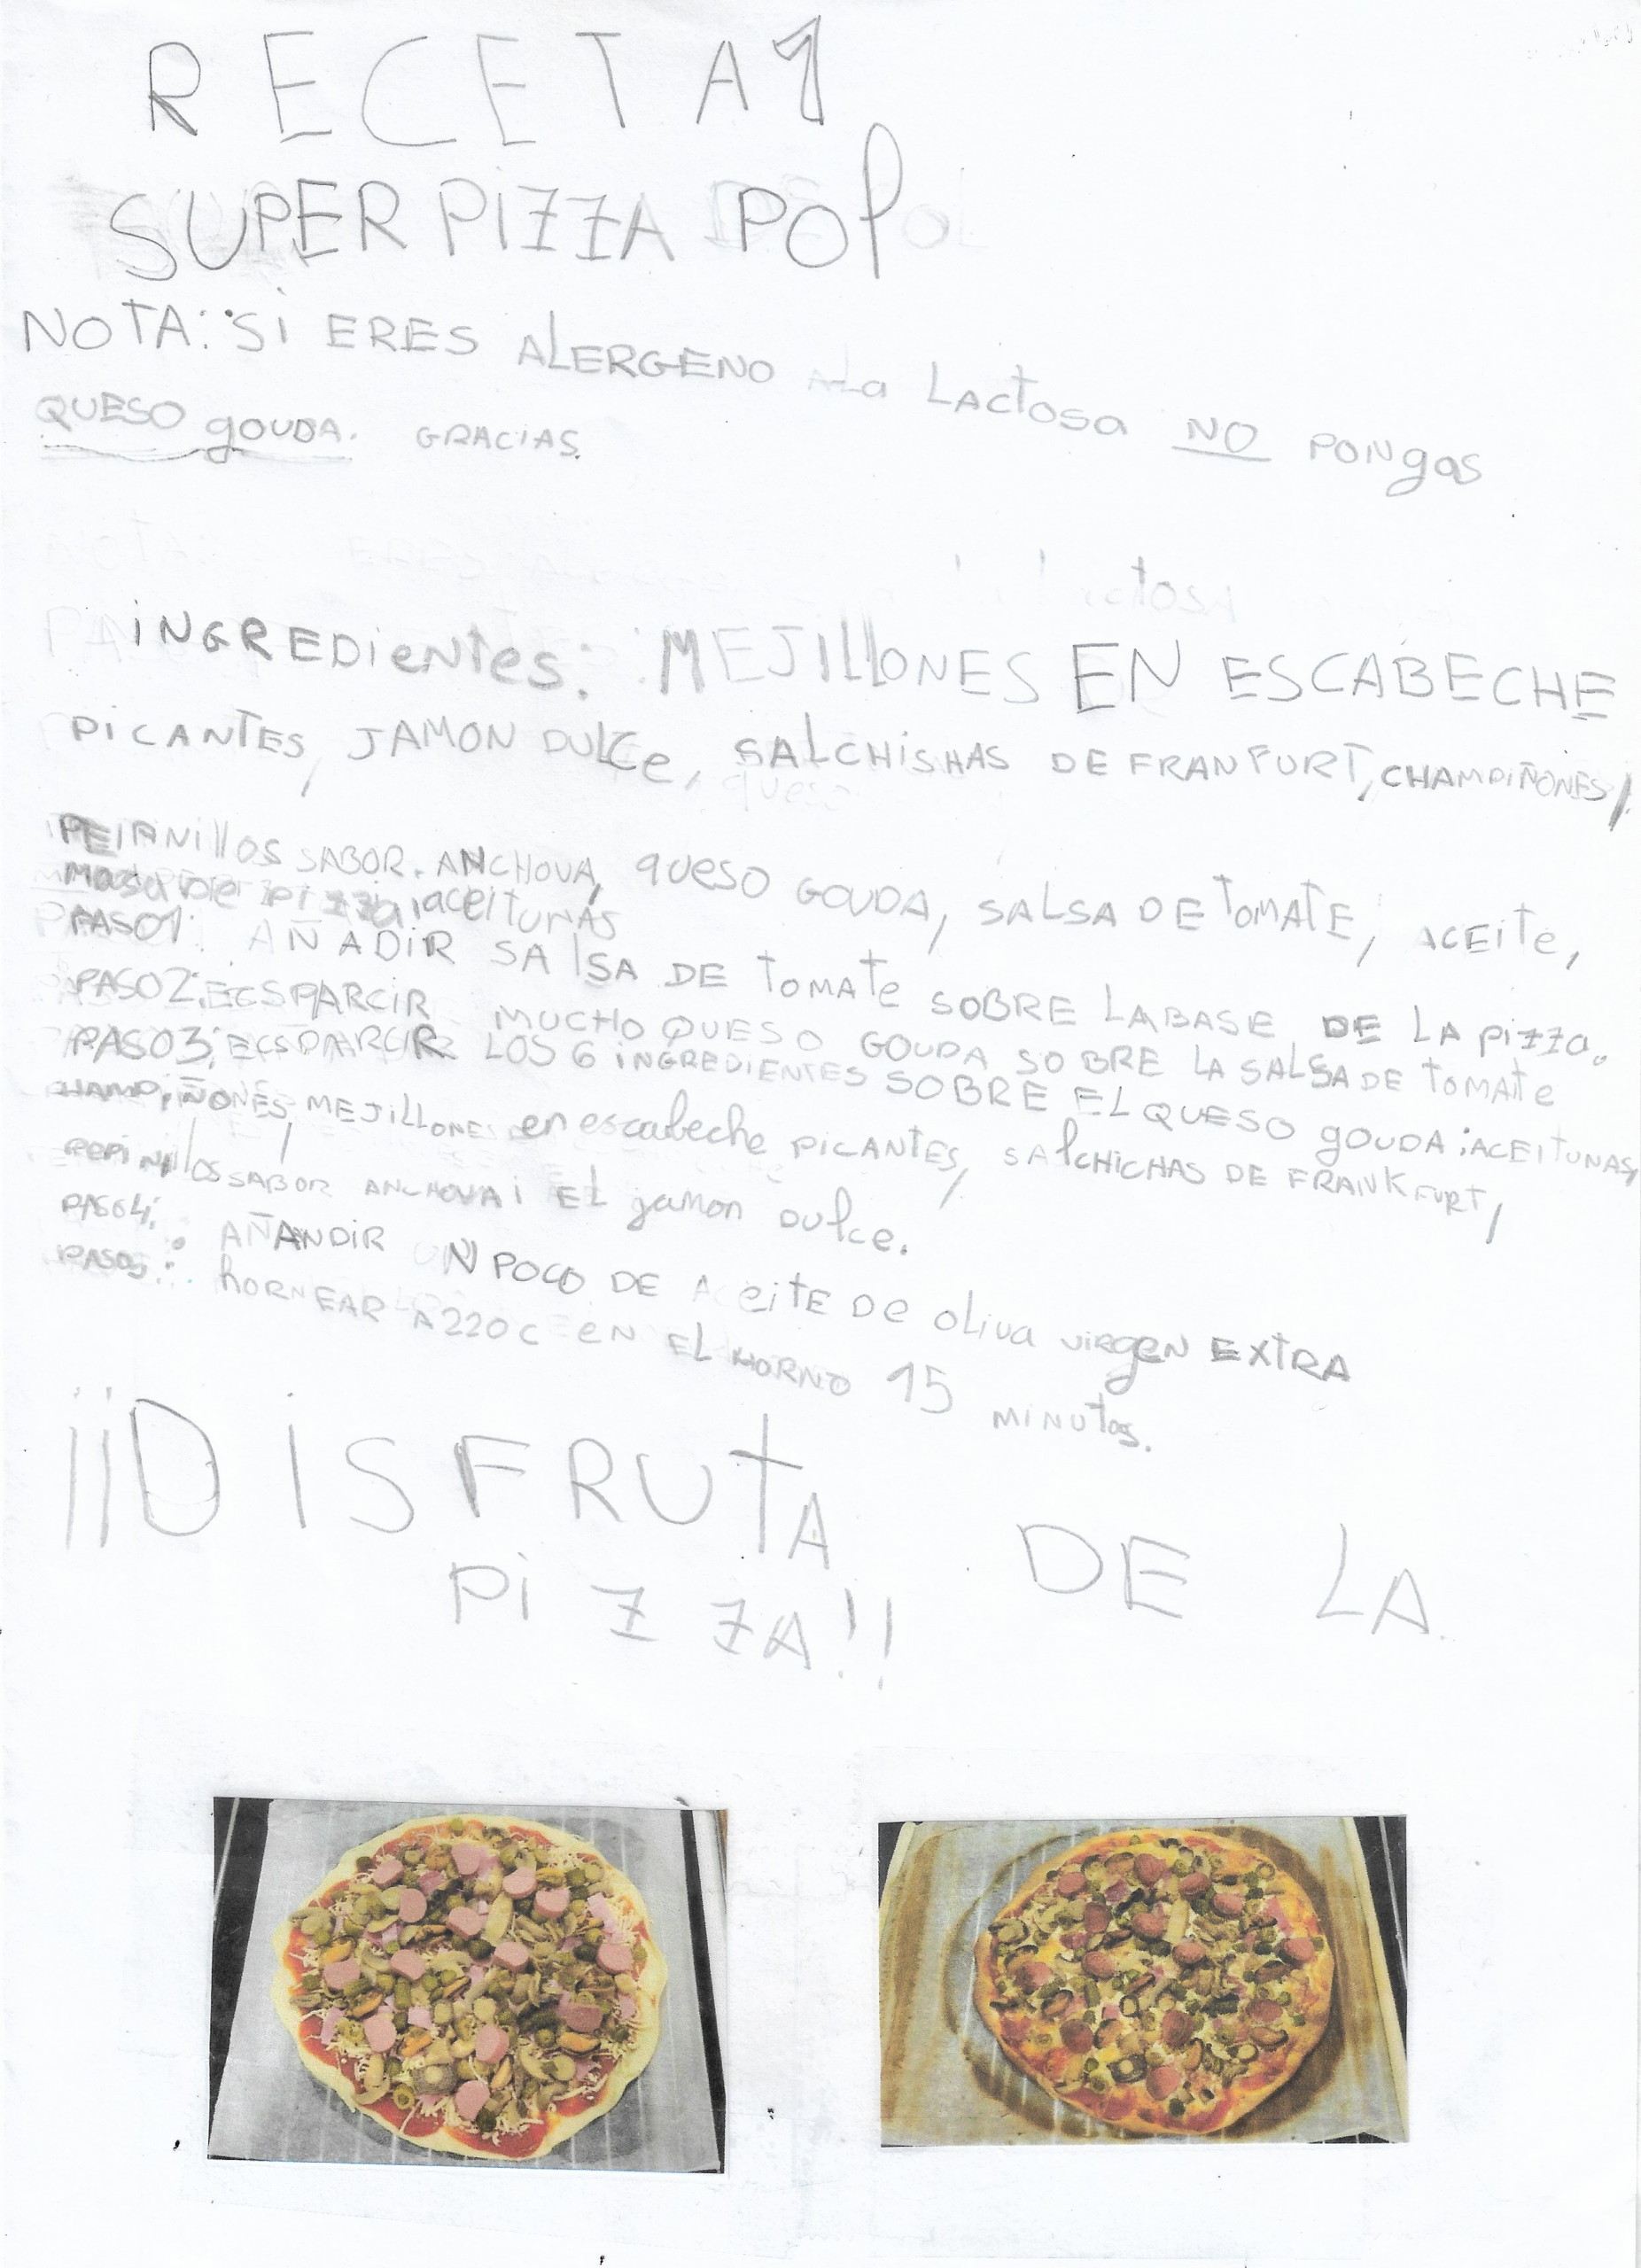 RECETA 1
SUPER PIZZA POl
NOTA: Si ERES ALERGENO A La LACtosa NO PONgas
QUESO gOUDA. GRACiAS.
iNGREDientes: MEJILLONES EN ESCABECHE
PICANTES, JAMON DULCe, SALCHISHAS DE FRANFURT, CHAMPIÑONES,
SABOR. ANCHOVA, queso GOUDA, SALSA DE tOMATE, ACEite,
Masa De pizza, aceitunas
PASO1: AÑADiR SAlSA DE tOMAte SOBRE LA BASE DE LA pizza.
PASO2: ECSPARCIR MUCHO QUESO GOUDA SOBRE LA SALSA DE tOMAte
PASO3: ECSPARCIR LOS 6 iNGREDIENTES SOBRE EL QUESO gOUDA: ACEITUNAS,
HAMPiÑONES, MEJILLONES en escabeche PICANTES, SAlCHICHAS DE FRANKFURT,
PEPiNillos SABOR ANCHOVA i EL jamon DUlce.
PASO4: AÑANDIR UN POCO DE Aceite De oliva virgen EXtRA
PASO5: hORNEAR A 220C eN EL HORNO 15 MiNUtos.
¡¡DiSFRUtA DE LA
Pi ZZA!!